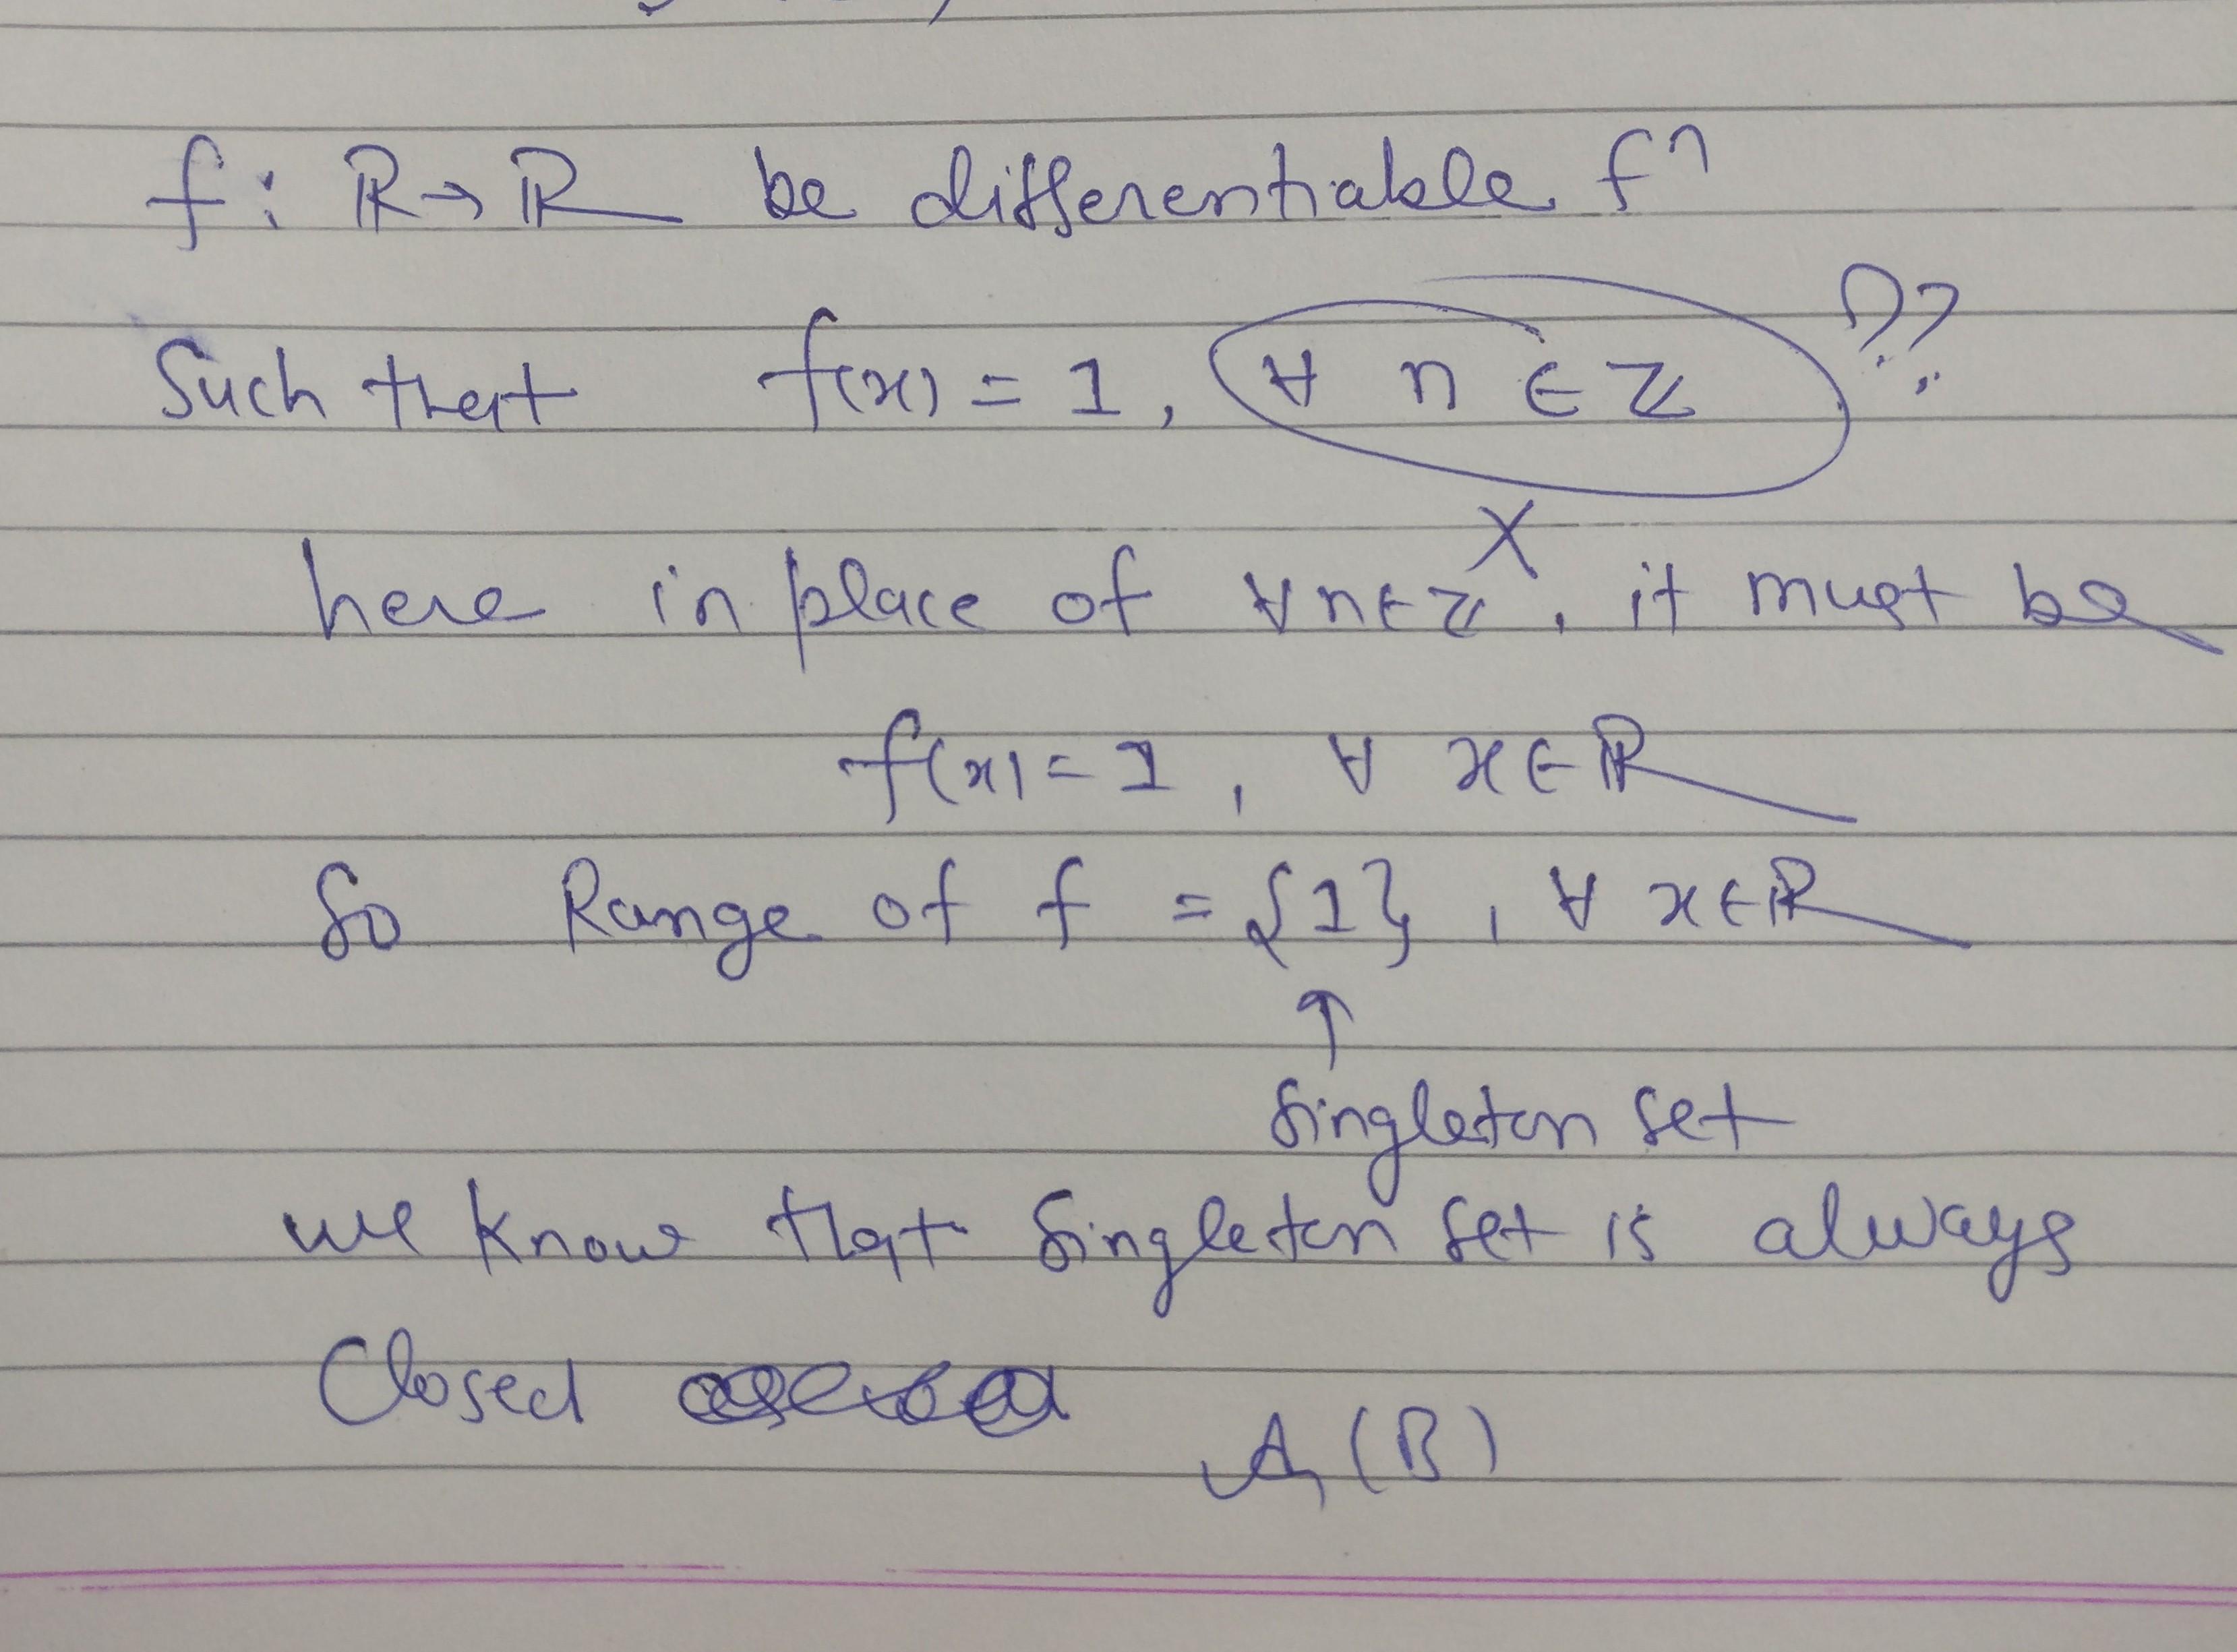 f: ℝ→ℝ be differentiable fⁿ
Such that f(x) = 1, ∀ n ∈ ℤ ??
X
here in place of ∀ n ∈ ℤ, it must be
f(x) = 1, ∀ x ∈ ℝ
So Range of f = {1}, ∀ x ∈ ℝ
↑
Singleton set
we know that Singleton set is always
Closed
A, (B)